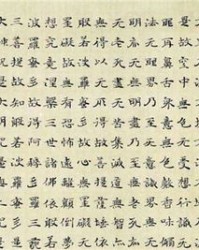 是故空中无色無受想行識无
眼耳鼻舌身意无色聲香味觸
法无眼界乃至无意識界无無
明亦无無明盡乃至無老死亦
无老死盡无苦集滅道无智亦
無得以无所得故菩提薩埵依
般若波羅蜜多故心無罣礙無
罣礙故無有恐怖遠離顛倒夢
想究竟涅槃三世諸佛依般若
波羅蜜多故得阿耨多羅三藐
三菩提故知般若波羅蜜多是
大神咒是大明咒是無上咒是